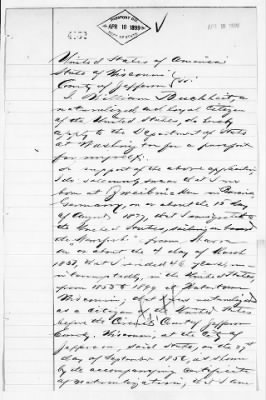 PASSPORT DIV.
APR 10 1899
DEPT. OF STATE
APR 10 1899
United States of America
State of Wisconsin
County of Jefferson } ss:
I, William Buchheit, a
naturalized and loyal citizen
of the United States, do hereby
apply to the Department of State
at Washington for a passport
for myself.
In support of the above application
I do solemnly swear that I was
born at Zweibrücken in
Germany, on or about the 15 day
of August, that I emigrated to
the United States, sailing on board
the from Havre
on or about the 1st day of March
1853, that I resided 46 years, un-
interruptedly, in the United States,
from 1853 to 1899 at Watertown
Wisconsin; that I was naturalized
as a citizen of the United States
before the Circuit Court of Jefferson
County, Wisconsin, at the City of
Jefferson, said State, on the 27th
day of September 1856, as shown
by the accompanying Certificate
of Naturalization; that I am